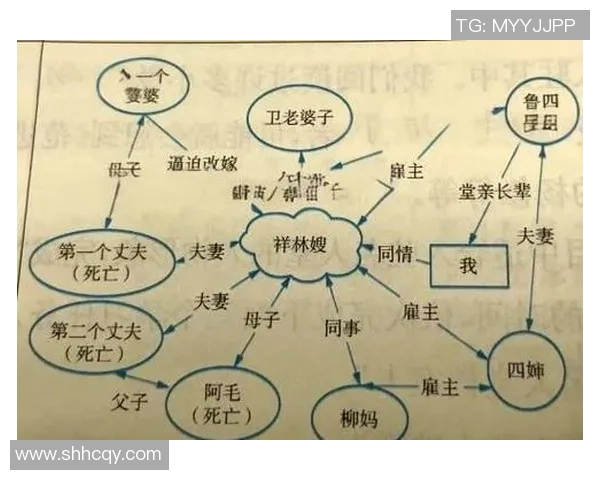 TG: MYYJJPP
一个
婆
卫老婆子
鲁四
母子
逼迫改嫁
雇主
堂亲长辈
夫妻
第一个丈夫
(死亡)
夫妻
祥林嫂
同情
我
第二个丈夫
(死亡)
夫妻
母子
同事
雇主
父子
阿毛
(死亡)
柳妈
雇主
四婶
www.shhcqy.com